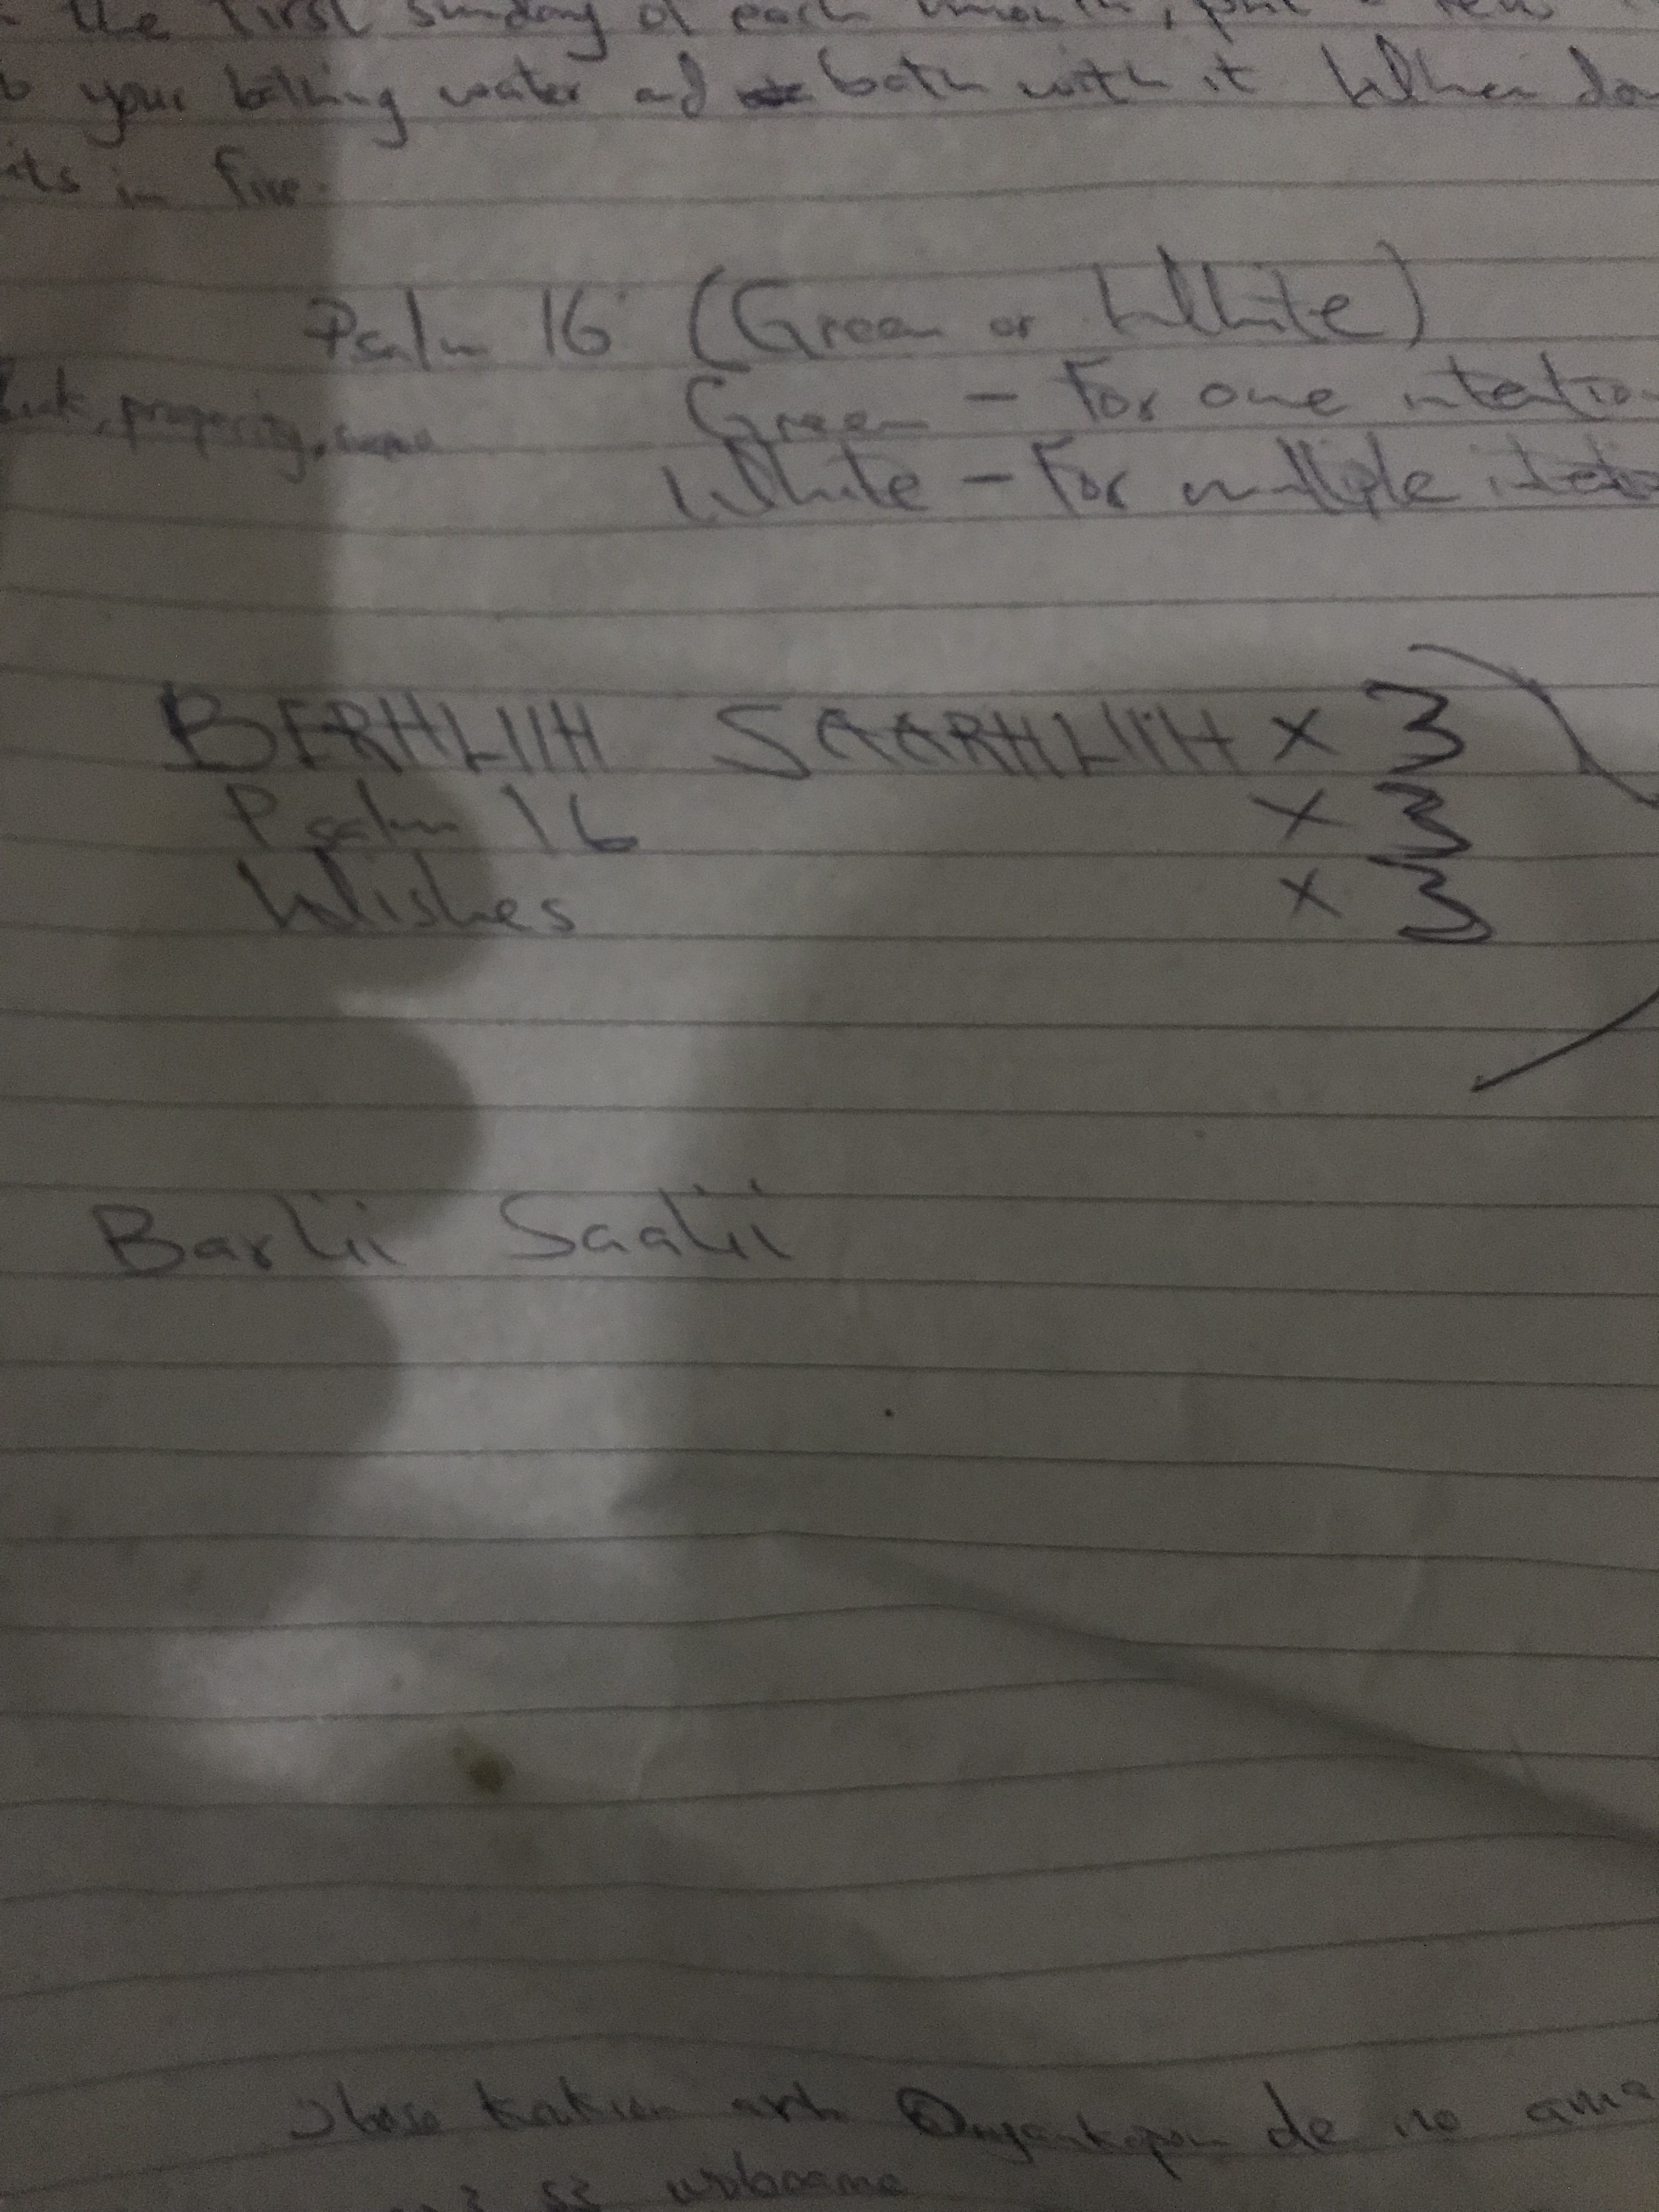 the first sunday of each month, put a few
your bathing water and bath with it When
in five
Psalm 16 (Green or White)
Luck, progerity,
Green - For one intention
White - For multiple
BERHLIIH SAARHLIIH x 3
Psalm 16 x 3
Wishes x 3
Barlii Saalii
de no ama